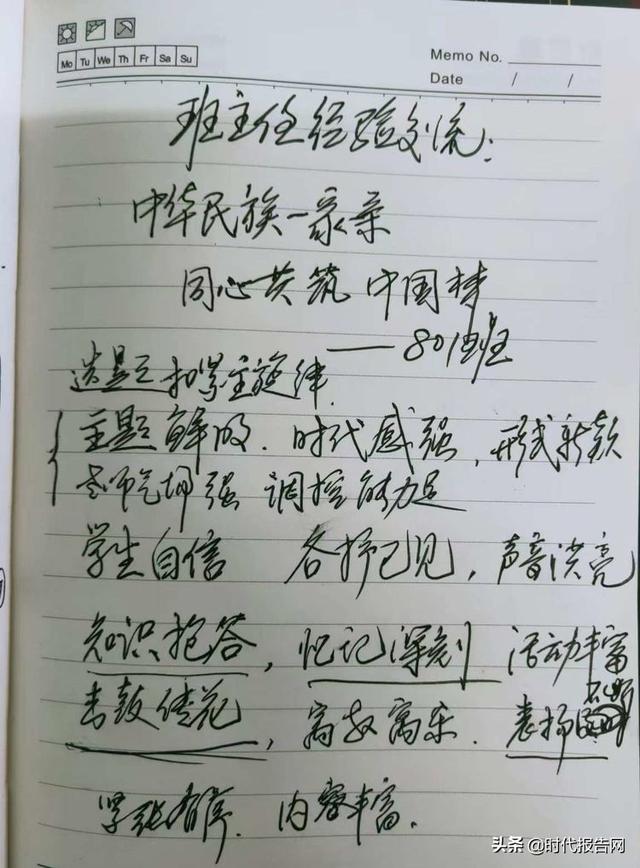 Mo Tu We Th Fr Sa Su
Memo No.
Date / /
班主任经验交流:
中华民族一家亲
同心共筑 中国梦
——801班
选题扣紧主旋律.
主题鲜明.时代感强,形式新颖
老师气场强 调控能力足
学生自信 各抒己见,声音洪亮
知识抢答,忆记深刻 活动丰富
击鼓传花,寓教寓乐.表扬
不断
紧张有序.内容丰富.
头条@时代报告网